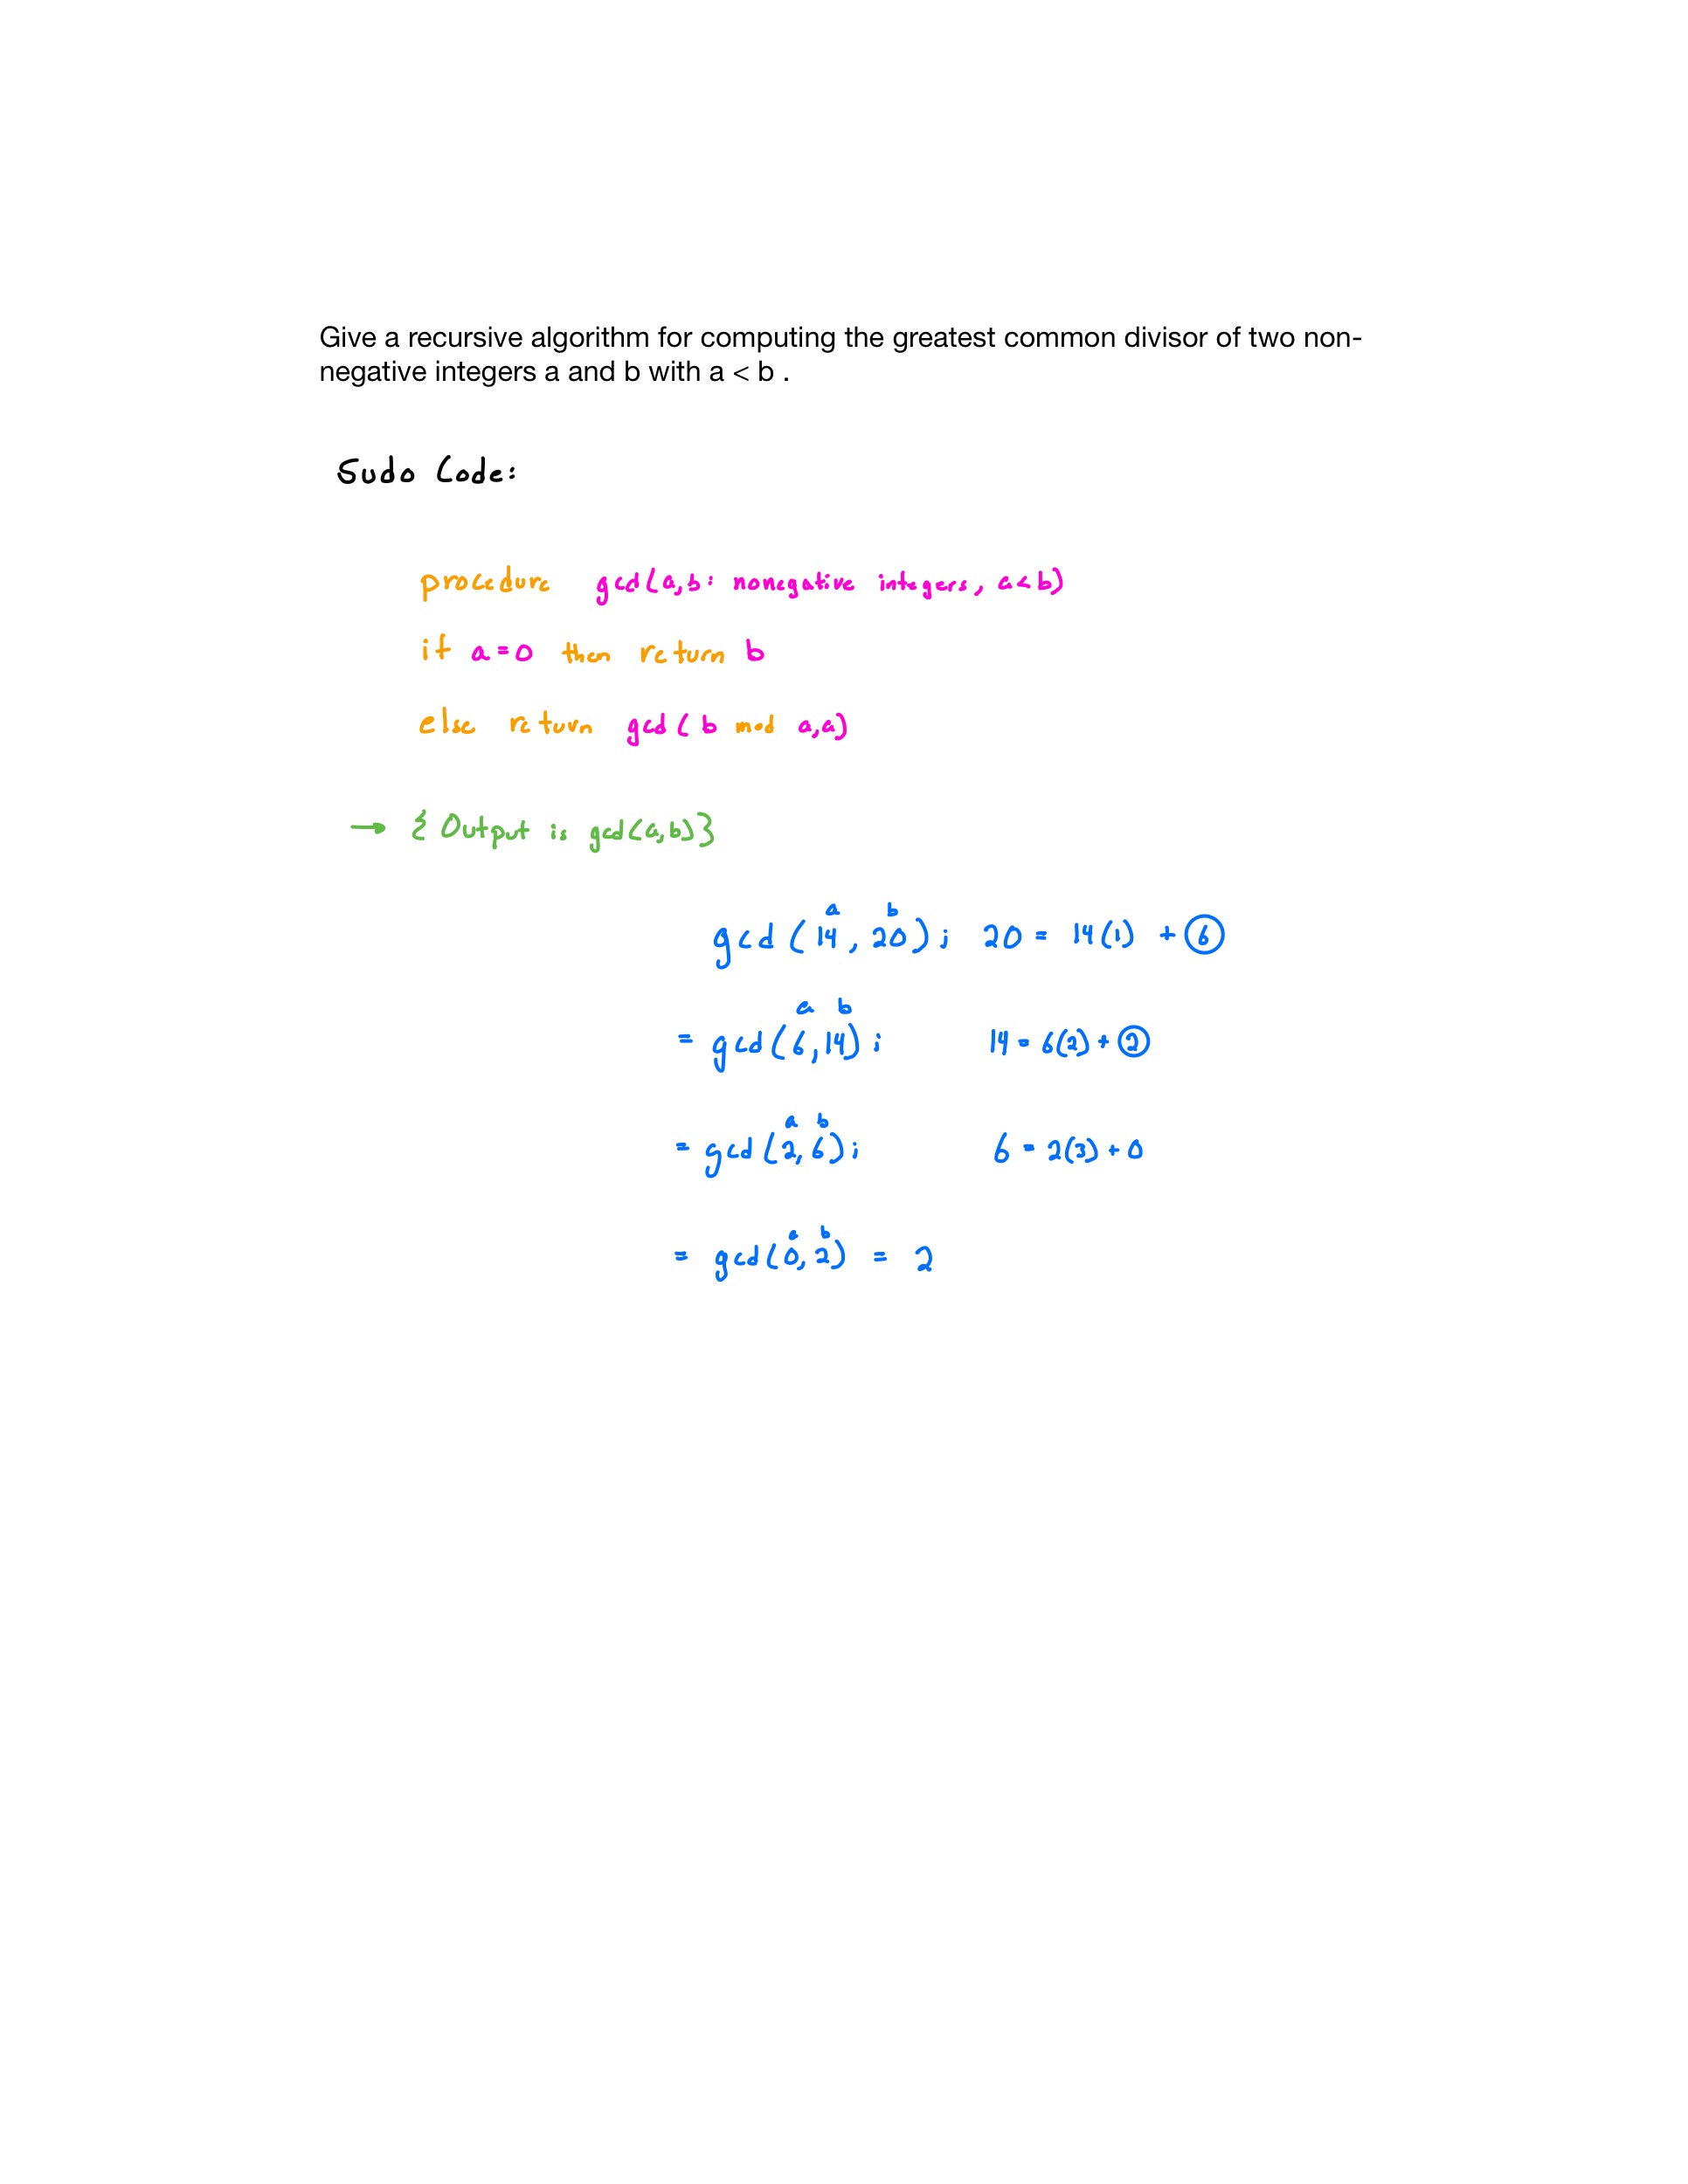 Give a recursive algorithm for computing the greatest common divisor of two non-
negative integers a and b with a < b .
Sudo Code:
procedure gcd(a,b: nonegative integers, a<b)
if a=0 then return b
else return gcd(b mod a,a)
→ {Output is gcd(a,b)}
a b
gcd(14, 20); 20 = 14(1) + 6
a b
= gcd(6,14); 14 = 6(2) + 2
a b
= gcd(2,6); 6 = 2(3) + 0
a b
= gcd(0,2) = 2